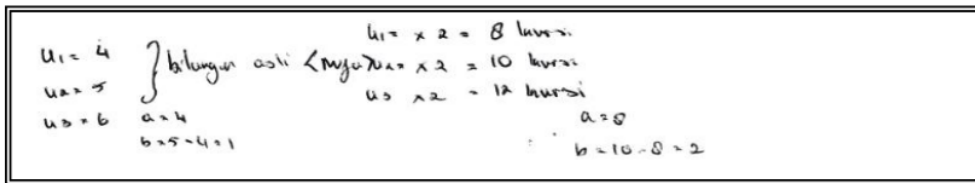 u1 = 4
u2 = 5
u3 = 6
} bilangan asli
a = 4
b = 5 - 4 = 1
u1 = x 2 = 8 kursi
u2 x 2 = 10 kursi
u3 x 2 = 12 kursi
a = 8
b = 10 - 8 = 2